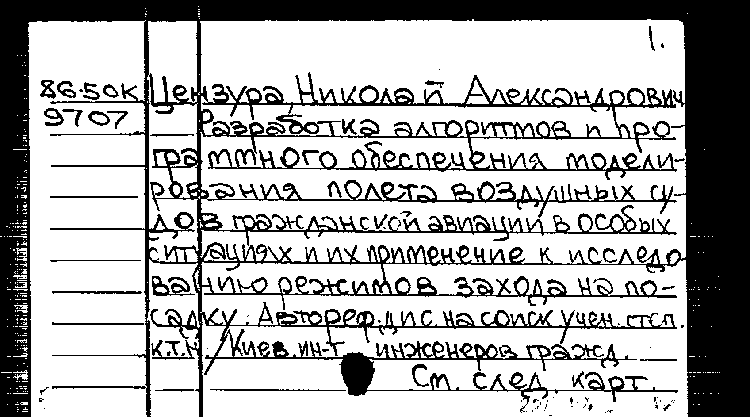 1.
86-50К Цензура, Николай Александрович
9707 Разработка алгоритмов и про-
граммного обеспечения модели-
рования полета воздушных су-
дов гражданской авиации в особых
ситуациях и их применение к исследо
ванию режимов захода на по-
садку. Автореф. дис. на соиск учен. степ.
к.т.н. / Киев. ин-т инженеров гражд.
См. след. карт.